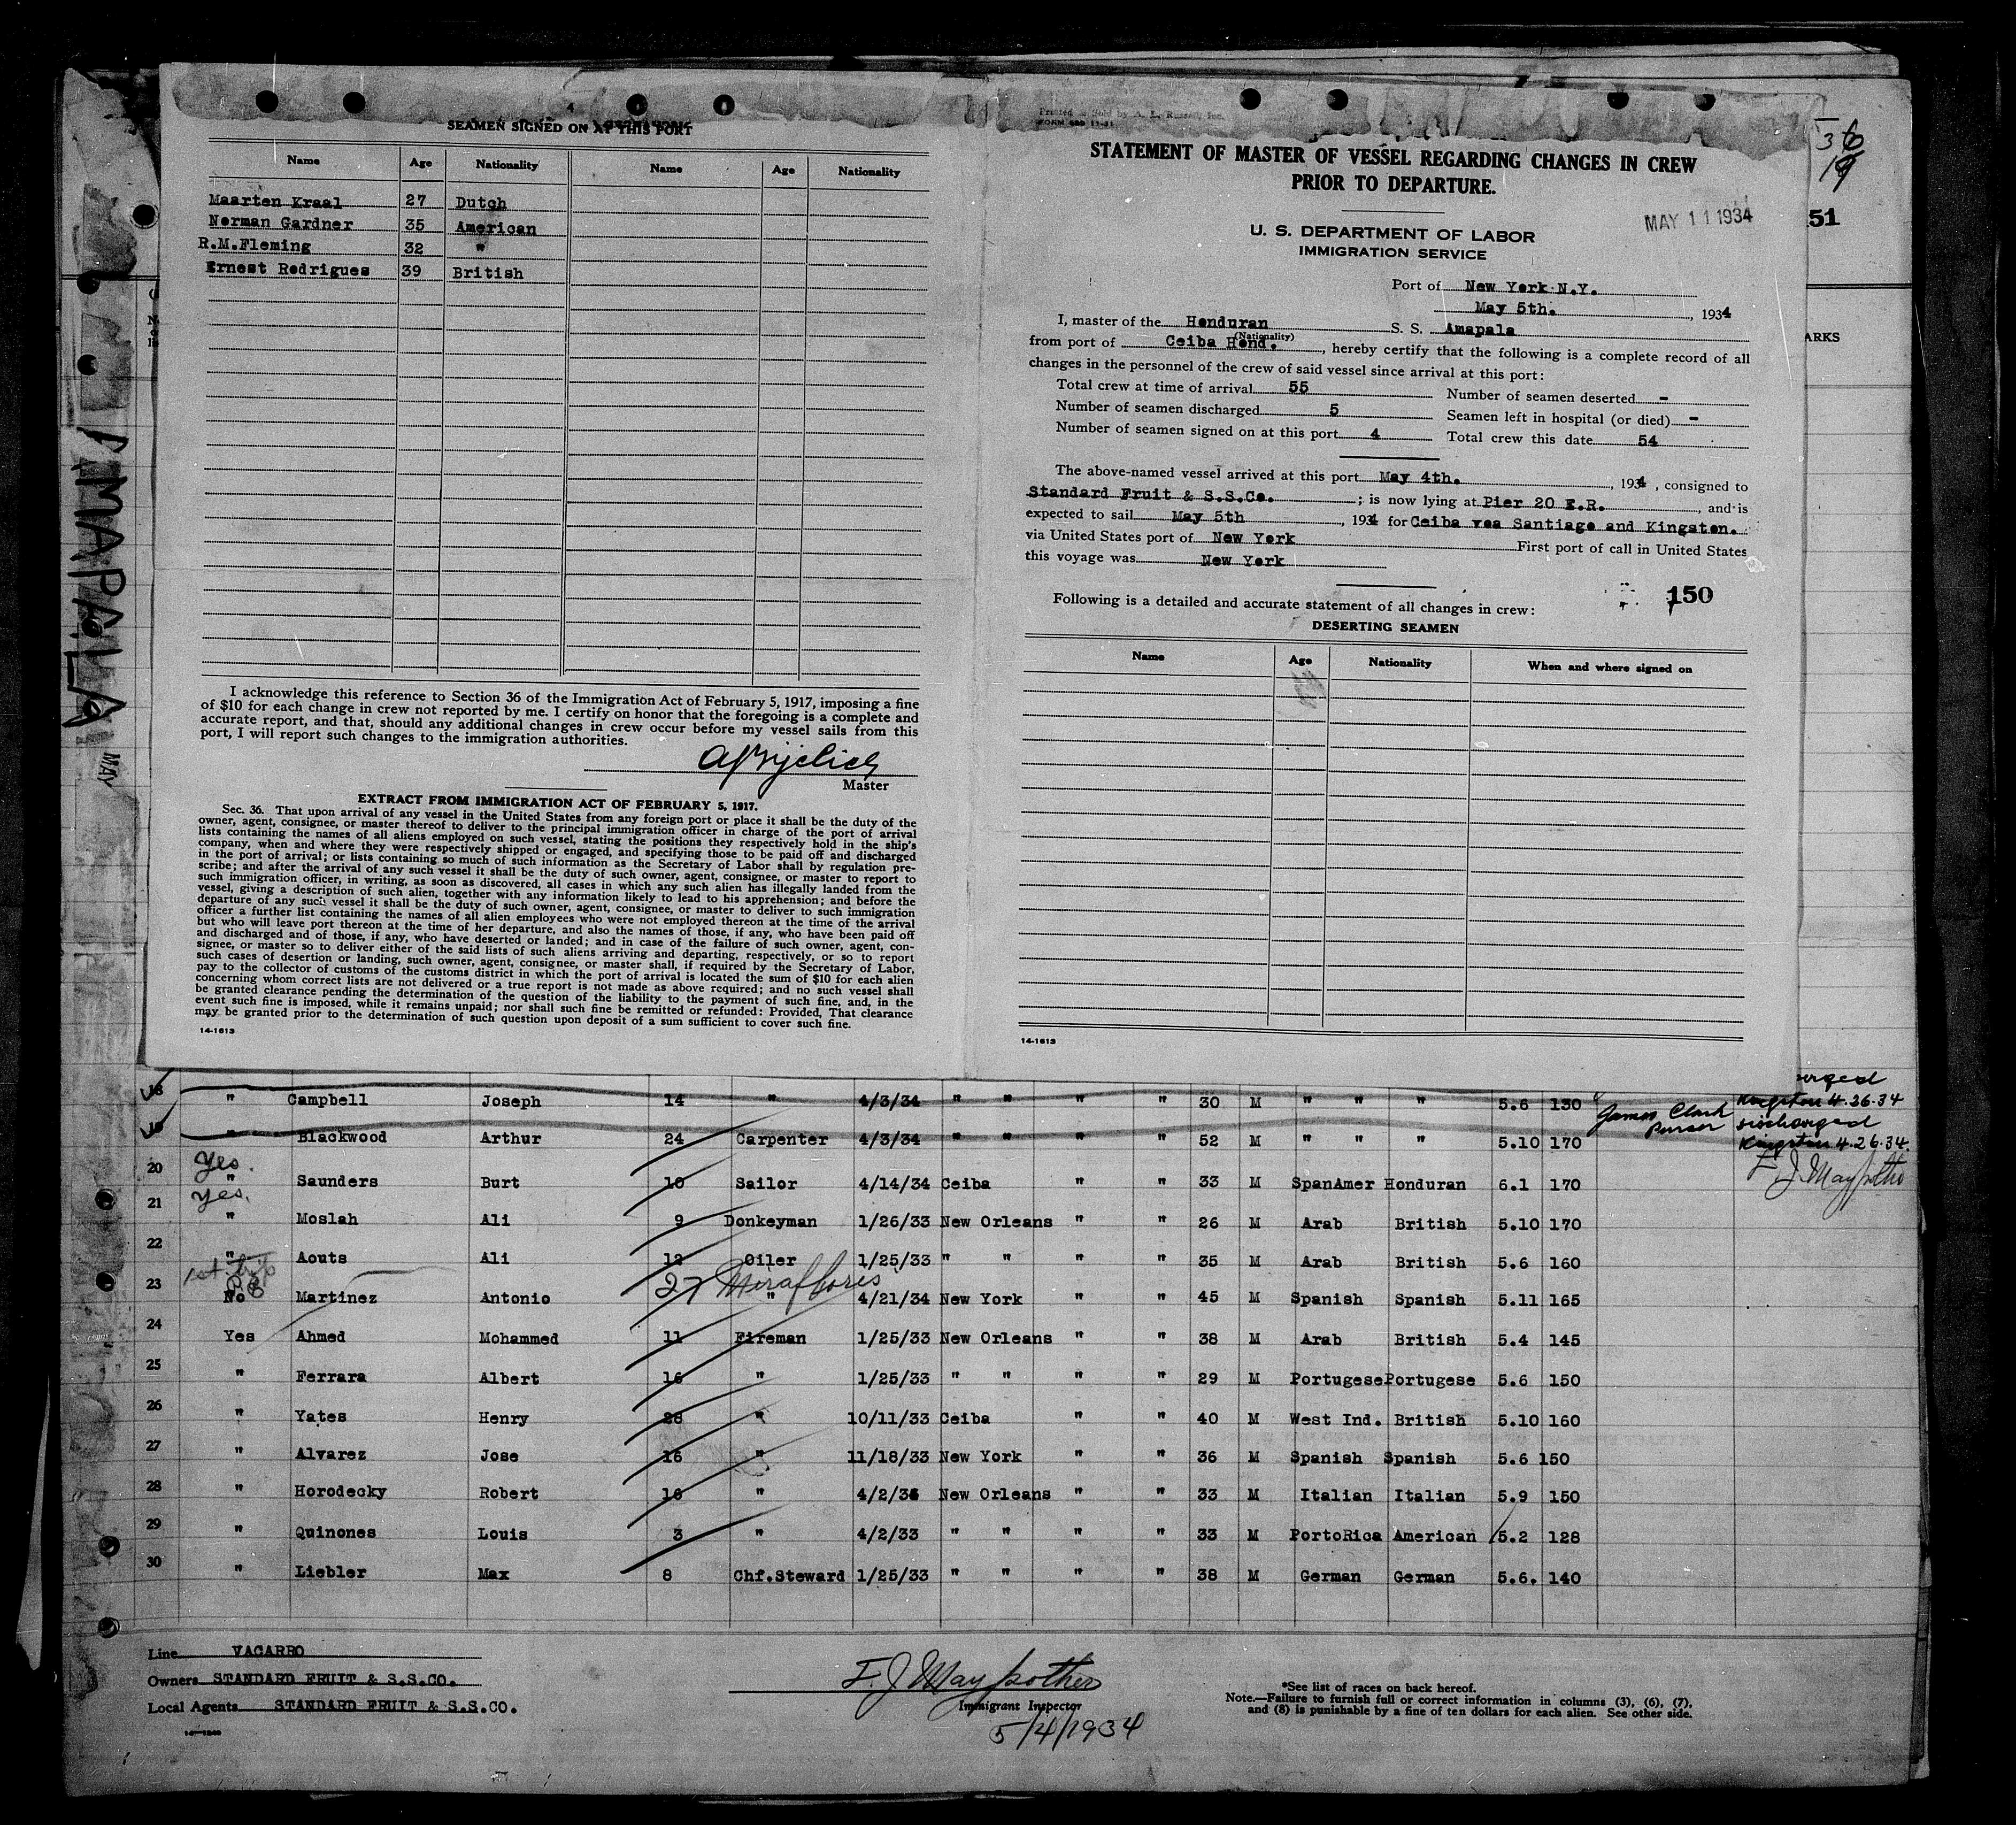 SEAMEN SIGNED ON AT THIS PORT
Name Age Nationality Name Age Nationality
Maarten Kraal 27 Dutch
Norman Gardner 35 American
R.M.Fleming 32 "
Ernest Rodrigues 39 British
I acknowledge this reference to Section 36 of the Immigration Act of February 5, 1917, imposing a fine
of $10 for each change in crew not reported by me. I certify on honor that the foregoing is a complete and
accurate report, and that, should any additional changes in crew occur before my vessel sails from this
port, I will report such changes to the immigration authorities.
Master
EXTRACT FROM IMMIGRATION ACT OF FEBRUARY 5, 1917.
Sec. 36. That upon arrival of any vessel in the United States from any foreign port or place it shall be the duty of the
owner, agent, consignee, or master thereof to deliver to the principal immigration officer in charge of the port of arrival
lists containing the names of all aliens employed on such vessel, stating the positions they respectively hold in the ship's
company, when and where they were respectively shipped or engaged, and specifying those to be paid off and discharged
in the port of arrival; or lists containing so much of such information as the Secretary of Labor shall by regulation pre-
scribe; and after the arrival of any such vessel it shall be the duty of such owner, agent, consignee, or master to report to
such immigration officer, in writing, as soon as discovered, all cases in which any such alien has illegally landed from the
vessel, giving a description of such alien, together with any information likely to lead to his apprehension; and before the
departure of any such vessel it shall be the duty of such owner, agent, consignee, or master to deliver to such immigration
officer a further list containing the names of all alien employees who were not employed thereon at the time of the arrival
but who will leave port thereon at the time of her departure, and also the names of those, if any, who have been paid off
and discharged and of those, if any, who have deserted or landed; and in case of the failure of such owner, agent, con-
signee, or master so to deliver either of the said lists of such aliens arriving and departing, respectively, or so to report
such cases of desertion or landing, such owner, agent, consignee, or master shall, if required by the Secretary of Labor,
pay to the collector of customs of the customs district in which the port of arrival is located the sum of $10 for each alien
concerning whom correct lists are not delivered or a true report is not made as above required; and no such vessel shall
be granted clearance pending the determination of the question of the liability to the payment of such fine, and, in the
event such fine is imposed, while it remains unpaid; nor shall such fine be remitted or refunded: Provided, That clearance
may be granted prior to the determination of such question upon deposit of a sum sufficient to cover such fine.
14-1613
Printed & Sold by A. L. Russell, Inc.
STATEMENT OF MASTER OF VESSEL REGARDING CHANGES IN CREW
PRIOR TO DEPARTURE.
MAY 11 1934
U. S. DEPARTMENT OF LABOR
IMMIGRATION SERVICE
Port of New York N.Y.
May 5th. , 1934
I, master of the Honduran S. S. Amapala
(Nationality)
from port of Ceiba Hond. , hereby certify that the following is a complete record of all
changes in the personnel of the crew of said vessel since arrival at this port:
Total crew at time of arrival 55 Number of seamen deserted -
Number of seamen discharged 5 Seamen left in hospital (or died) -
Number of seamen signed on at this port 4 Total crew this date 54
The above-named vessel arrived at this port May 4th. , 1934 , consigned to
Standard Fruit & S.S.Co. ; is now lying at Pier 20 E.R. , and is
expected to sail May 5th , 1934 for Ceiba vea Santiago and Kingston.
via United States port of New York First port of call in United States
this voyage was New York
150
Following is a detailed and accurate statement of all changes in crew:
DESERTING SEAMEN
Name Age Nationality When and where signed on
14-1613
51
ARKS
AMAPALA
MAY
18 " Campbell Joseph 14 " 4/3/34 " " " " 30 M " " " 5.6 130 Kingston 4.26.34
James Clark
Purser
19 " Blackwood Arthur 24 Carpenter 4/3/34 " " " " 52 M " " " 5.10 170 Discharged
Kingston 4.26.34.
Yes.
20 " Saunders Burt 10 Sailor 4/14/34 Ceiba " " 33 M SpanAmer Honduran 6.1 170
Yes.
21 " Moslah Ali 9 Donkeyman 1/26/33 New Orleans " " 26 M Arab British 5.10 170
22 " Aouts Ali 12 Oiler 1/25/33 " " " " 35 M Arab British 5.6 160
1st trip
27 Miraflores
23 No Martinez Antonio " 4/21/34 New York " " 45 M Spanish Spanish 5.11 165
24 Yes Ahmed Mohammed 11 Fireman 1/25/33 New Orleans " " 38 M Arab British 5.4 145
25 " Ferrara Albert 16 " 1/25/33 " " " " 29 M Portugese Portugese 5.6 150
26 " Yates Henry 28 " 10/11/33 Ceiba " " 40 M West Ind. British 5.10 160
27 " Alvarez Jose 16 " 11/18/33 New York " " 36 M Spanish Spanish 5.6 150
28 " Horodecky Robert 10 " New Orleans " " 33 M Italian Italian 5.9 150
29 " Quinones Louis 3 " 4/2/33 " " " " 33 M PortoRica American 5.2 128
30 " Liebler Max 8 Chf.Steward 1/25/33 " " " " 38 M German German 5.6. 140
Line VACARRO
Owners STANDARD FRUIT & S.S.CO.
Local Agents STANDARD FRUIT & S.S.CO.
Immigrant Inspector
5/4/1934
*See list of races on back hereof.
Note.—Failure to furnish full or correct information in columns (3), (6), (7),
and (8) is punishable by a fine of ten dollars for each alien. See other side.